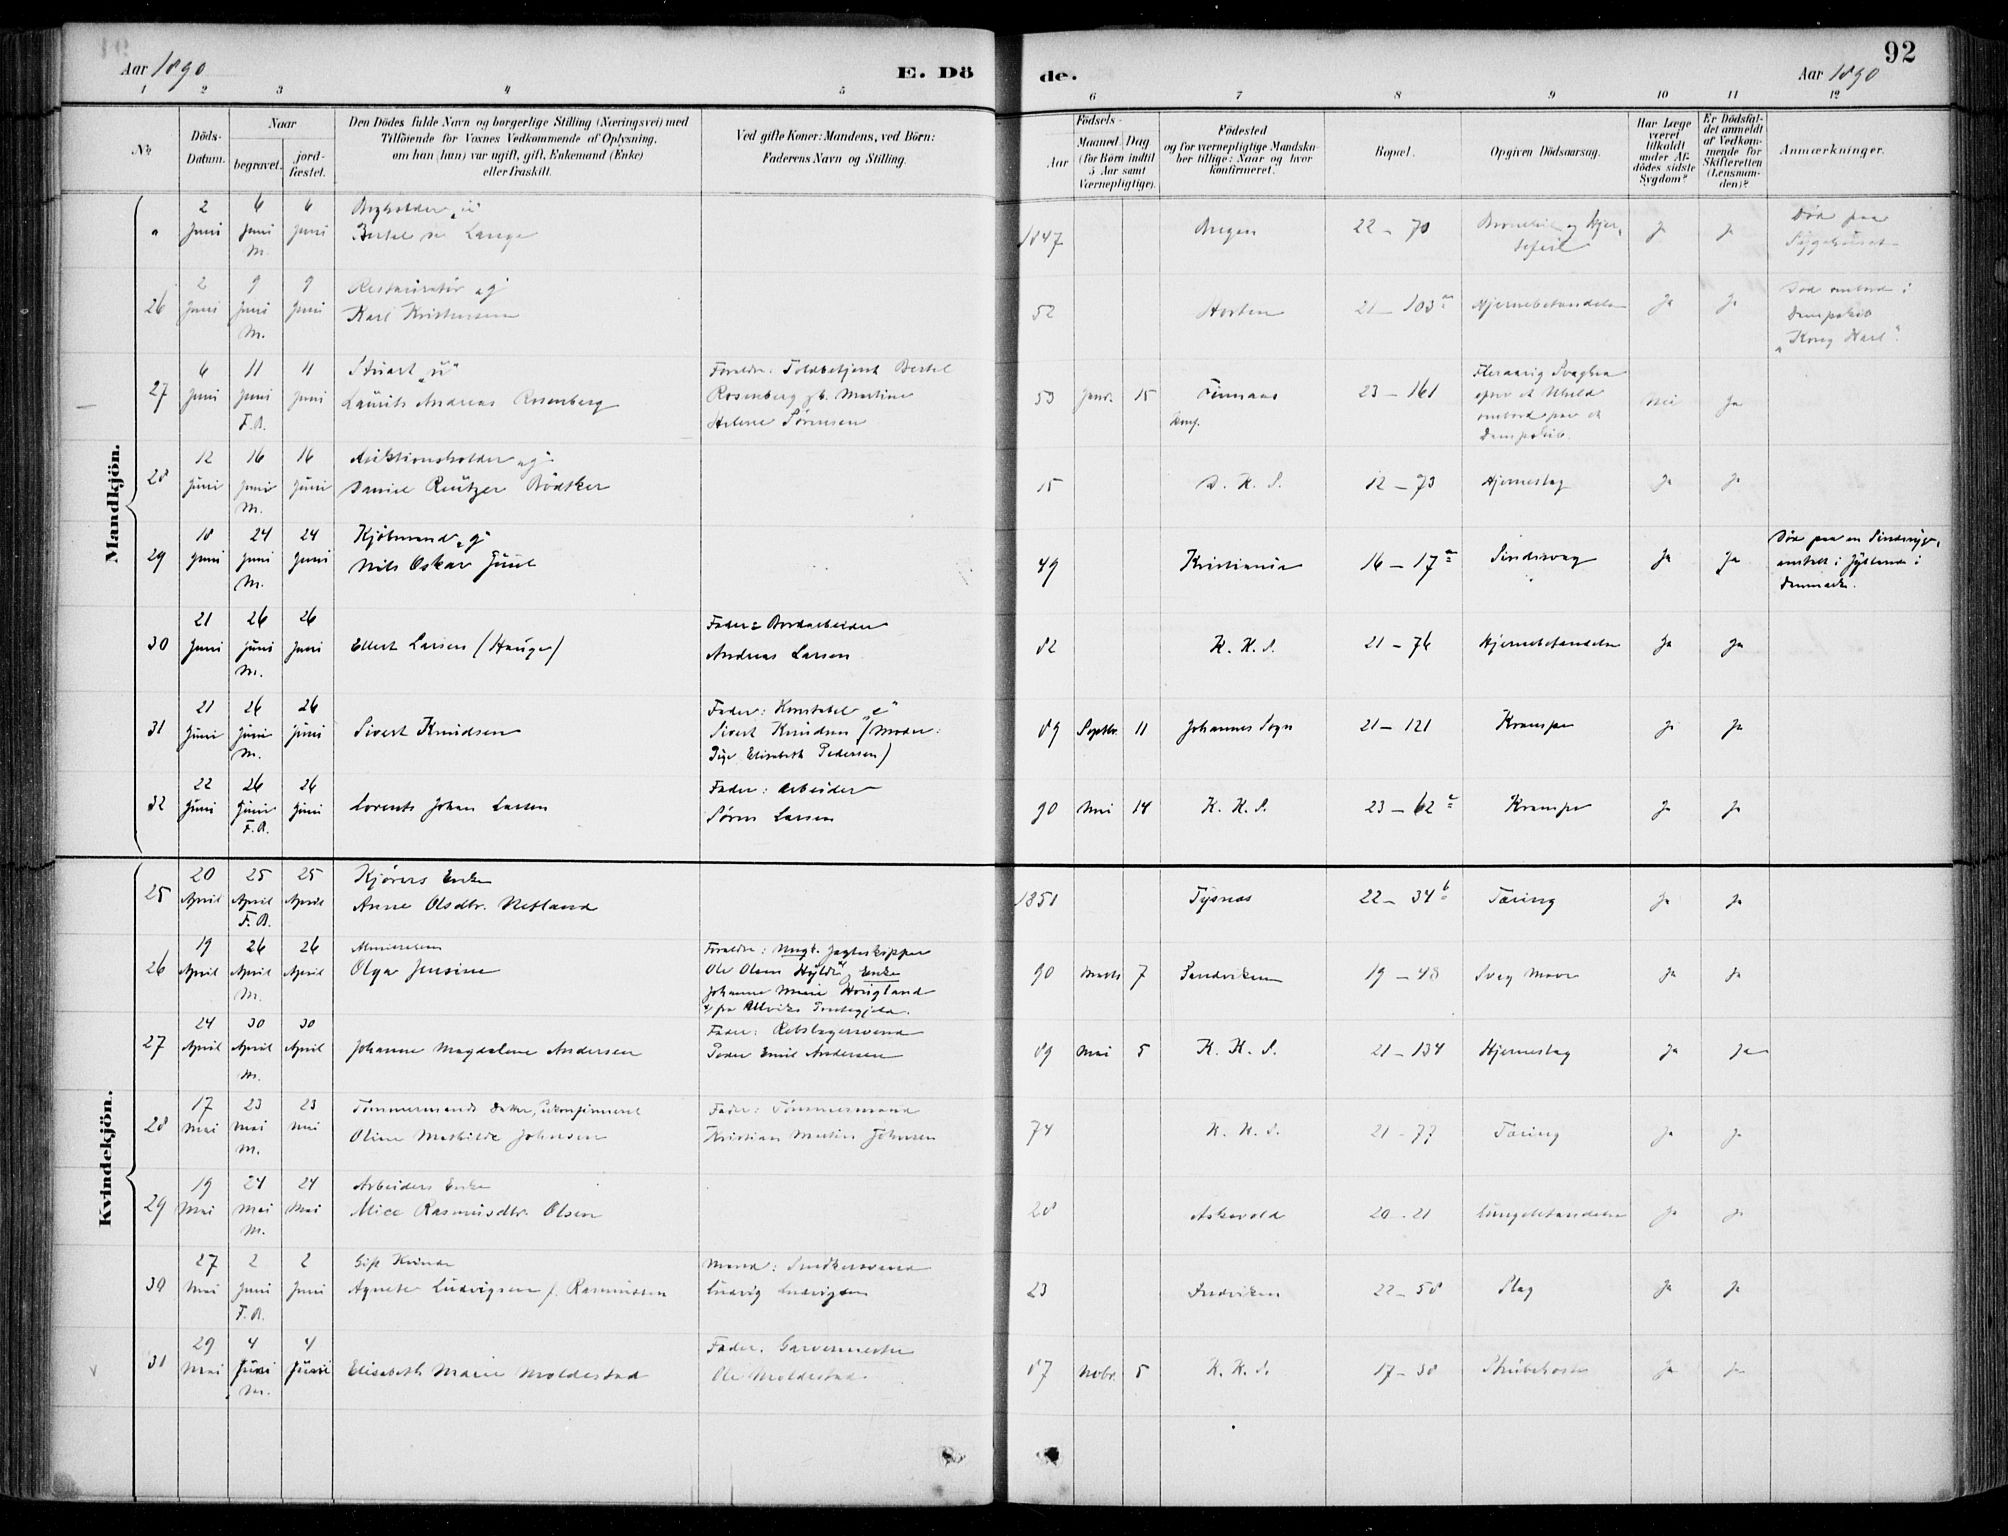 Aar 1890
E. Dö
de.
Aar 1890
92
1 2 3 4 5 6 7 8 9 10 11 12
No
Döds-Datum.
Naar
begravet.
jordfæstet.
Den Dödes fulde Navn og borgerlige Stilling (Næringsvei) med
Tilföiende for Voxnes Vedkommende af Oplysning,
om han (hun) var ugift, gift, Enkemand (Enke)
eller fraskilt.
Ved gifte Koner: Mandens, ved Börn:
Faderens Navn og Stilling.
Födsels-
Aar
Maaned Dag
(for Börn indtil
5 Aar samt
Værnepligtige).
Födested
og for værnepligtige Mandska-
ber tillige: Naar og hvor
konfirmeret.
Bopæl.
Opgiven Dödsaarsag.
Har Læge
været
tilkaldt
under Af-
dödes sidste
Sygdom?
Er Dödsfal-
det anmeldt
af Vedkom-
mende for
Skifteretten
(Lensman-
den)?
Anmærkninger.
Mandkjön.
2 Juni 6 Juni M. 6 Juni Bertel Lange 1847 Bergen 22 – 70 Ja Ja Död paa Sygehuset
26 2 Juni 9 Juni M. 9 Juni Restauratør "g" Karl Kristensen 52 Horten 21 – 103 a Hjernebetændelse Ja Ja Död ombord i Dampskib "Kong Karl".
27 6 Juni 11 Juni F.B. 11 Juni Stuart "u" Laurits Andreas Rosenberg Forældre: Toldbetjent Bertel Rosenberg og h. Martine Helene Sørensen 53 Janr. 15 Finnaas Konf. 23 – 161 Nei Ja
28 12 Juni 16 Juni M. 16 Juni Auktionsholder "g" Daniel Reutzer Bödtker 15 D. K. S. 12 – 73 Hjerneslag Ja Ja
29 18 Juni 24 Juni M. 24 Juni Kjöbmand "g" Nils Oskar Juul 49 Kristiania 16 – 17 a Sindssvag Ja Ja Död paa en Sindssyge-anstalt i Jylland i Danmark.
30 21 Juni 26 Juni M. 26 Juni Ellert Larsen (Hauge) Fader: Bordarbeider Andreas Larsen 82 K. K. S. 21 – 76 Hjernebetændelse Ja Ja
31 21 Juni 26 Juni M. 26 Juni Sivert Knudsen Fader: Konstabel "e" Sivert Knudsen (Moder: Pige Elisabeth Pedersen) 89 Septbr. 11 Johannes Sogn 21 – 121 Krampe Ja Ja
32 22 Juni 26 Juni F.B. 26 Juni Lorents Johan Larsen Fader: Arbeider Sören Larsen 90 Mai 14 K. K. S. 23 – 62 Krampe Ja Ja
Kvindekjön.
25 20 April 25 April F.B. 25 April Kjörers Enke Anne Olsdtr. Nesland 1851 Tysnes 22 – 34 b Tæring Ja Ja
26 19 April 26 April M. 26 April Olga Jensine Forældre: Ungk. Jagteskipper Ole Olsen Hylde og Enke Johanne Marie Hougland fra Ullviks Præstegjeld. 90 Marts 7 Sandviken 19 – 48 Svag Mave Ja Ja
27 24 April 30 April M. 30 April Johanne Magdalene Andersen Fader: Rebslagersvend Peder Emil Andersen 89 Mai 5 K. K. S. 21 – 134 Hjerneslag Ja Ja
28 17 Mai 23 Mai M. 23 Mai Tømmermands Datter, ukonfirmeret Oline Mathilde Johnsen Fader: Tømmermand Kristian Martin Johnsen 74 K. K. S. 21 – 77 Tæring Ja Ja
29 19 Mai 24 Mai M. 24 Mai Arbeiders Enke Alice Rasmusdtr. Olsen 28 Askevold 20 – 21 Lungebetændelse Ja Ja
30 27 Mai 2 Juni F.B. 2 Juni Gift Kvinde Agnete Ludvigsen f. Rasmussen Mand: Snedkersvend Ludvig Ludvigsen 23 Indviken 22 – 58 Slag Ja Ja
31 29 Mai 4 Juni M. 4 Juni Elisabeth Marie Moldestad Fader: Garvermester Ole Moldestad 87 Novbr. 5 K. K. S. 17 – 38 Strubehoste Ja Ja